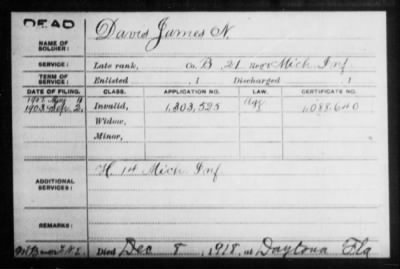 DEAD
NAME OF SOLDIER: David James N.
SERVICE: Late rank, Co. B 21 Reg't Mich Inf
TERM OF SERVICE: Enlisted , 1 Discharged , 1
DATE OF FILING. CLASS. APPLICATION NO. LAW. CERTIFICATE NO.
Invalid, 1,303,525 1,088,640
Widow,
Minor,
ADDITIONAL SERVICES: H. 1st Mich Inf
Died Dec 8, 1918, at Daytona Fla